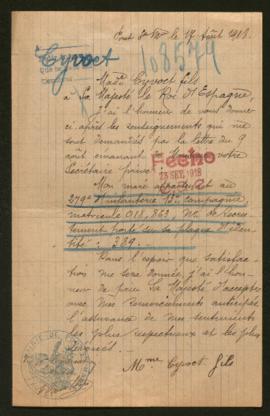 le 17 Août 1918.
108579
Cyvoct
Mad. Cyvoct fils
à Sa Majesté le Roi d'Espagne
J'ai l'honneur de vous donner
ci après les renseignements qui me
sont demandés par la lettre du 9
août émanant de votre
Secrétaire privé.
Fecho
23 SEP. 1918
2
Mon mari appartient au
279e d'infanterie 18e compagnie
matricule 018,863, No de recru-
tement porté sur la plaque d'iden-
tité : 389.
Dans l'espoir que satisfac-
tion me sera donnée, j'ai l'hon-
neur de prier Sa Majesté d'accepter
avec mes remerciements anticipés
l'assurance de mes sentiments
les plus respectueux et les plus
Mme Cyvoct fils